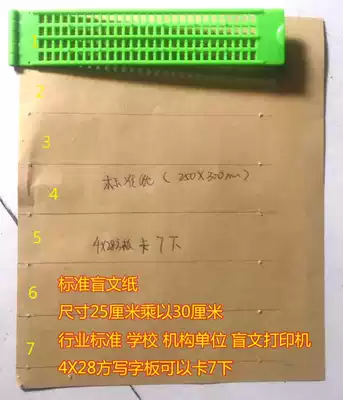 1
2
3
标准纸（250X300mm）
4
4X28方板卡7下
5
标准盲文纸
6
尺寸25厘米乘以30厘米
行业标准 学校 机构单位 盲文打印机
7
4X28方写字板可以卡7下